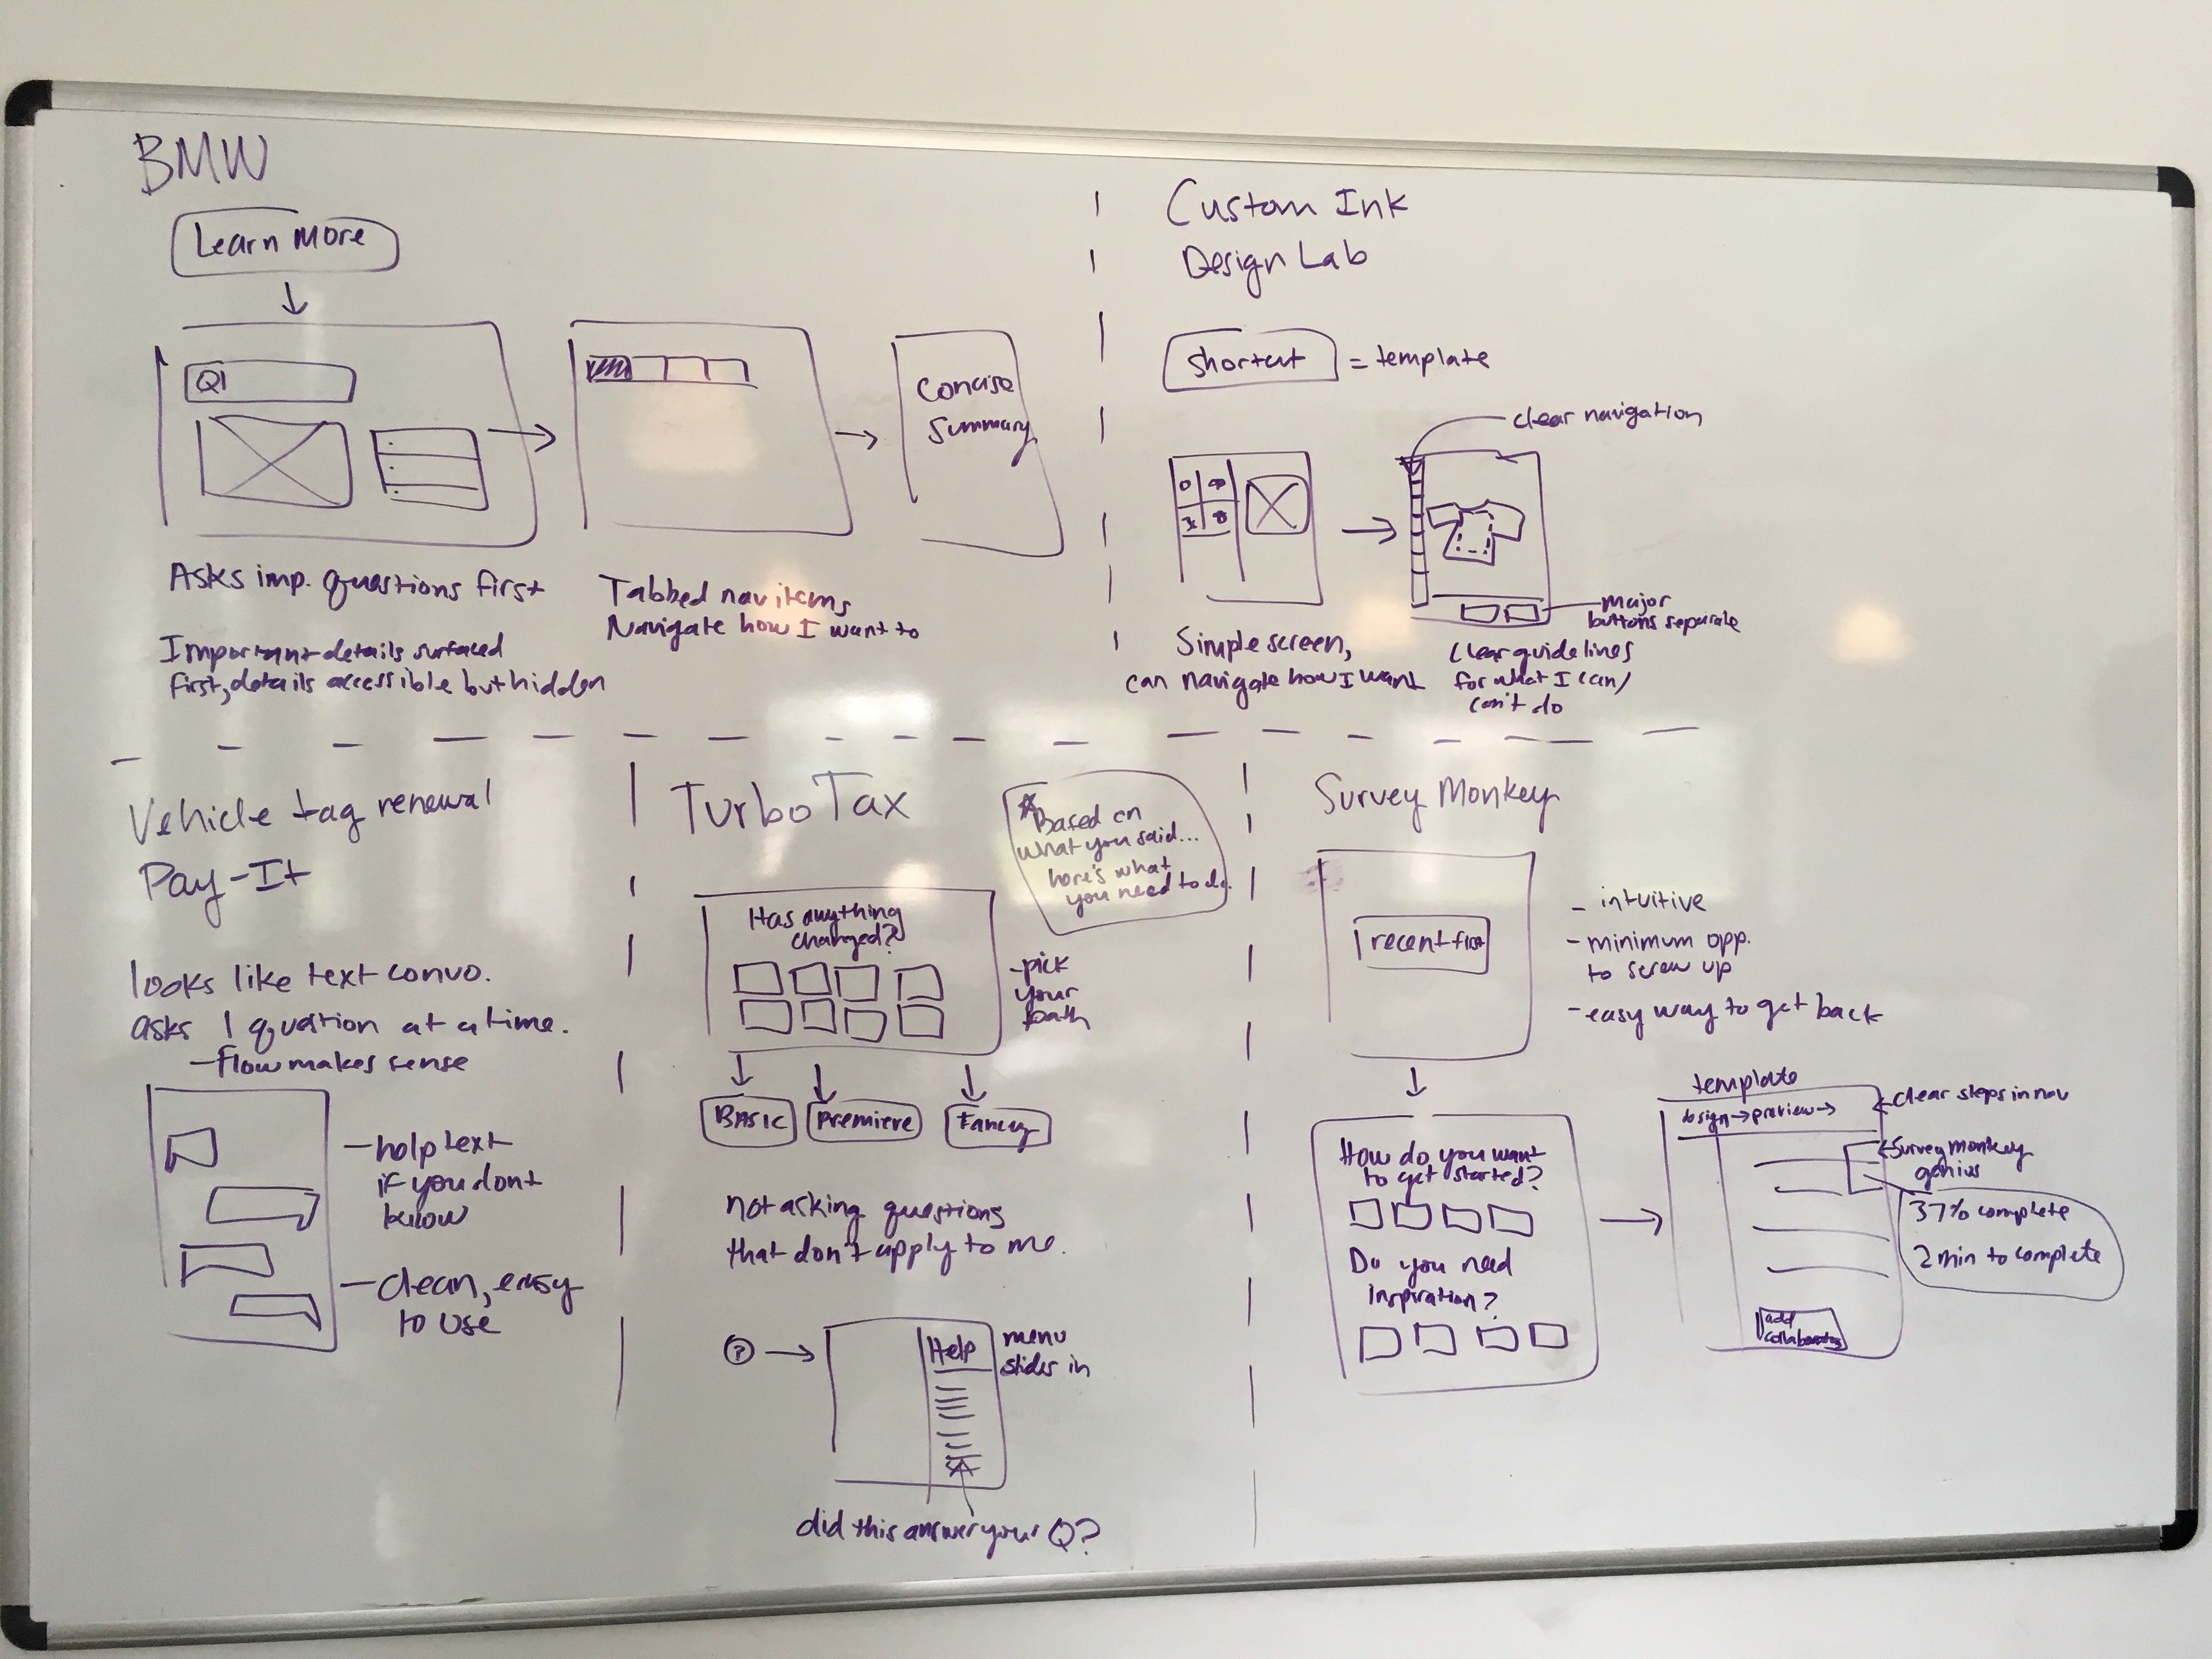 BMW
Learn More
Q1
Concise
Summary
Asks imp. questions first
Important details surfaced
first, details accessible but hidden
Tabbed nav items
Navigate how I want to
Custom Ink
Design Lab
shortcut = template
clear navigation
major
buttons separate
Simple screen,
can navigate how I want
clear guidelines
for what I can/
can't do
Vehicle tag renewal
Pay-It
looks like text convo.
asks 1 question at a time.
-flow makes sense
-help text
if you dont
know
-clean, easy
to use
TurboTax
*Based on
what you said...
here's what
you need to do.
Has anything
changed?
-pick
your
path
BASIC
Premiere
Fancy
not asking questions
that don't apply to me.
?
Help
menu
slides in
did this answer your Q?
Survey Monkey
recent first
- intuitive
- minimum opp.
to screw up
-easy way to get back
How do you want
to get started?
Do you need
inspiration?
template
design→preview→
clear steps in nav
Survey monkey
genius
37% complete
2 min to complete
add
collaborators